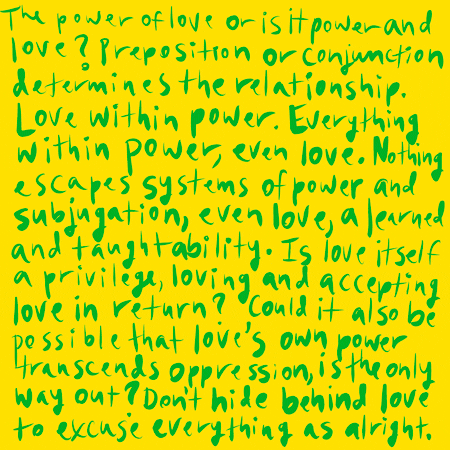 The power of love or is it power and
love? Preposition or conjunction
determines the relationship.
Love within power. Everything
within power, even love. Nothing
escapes systems of power and
subjugation, even love, a learned
and taught ability. Is love itself
a privilege, loving and accepting
love in return? Could it also be
possible that love's own power
transcends oppression, is the only
way out? Don't hide behind love
to excuse everything as alright.